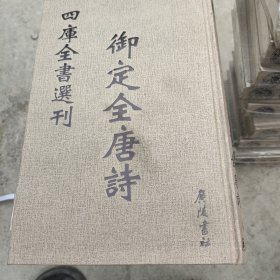 四庫全書選刊
御定全唐詩
廣陵書社